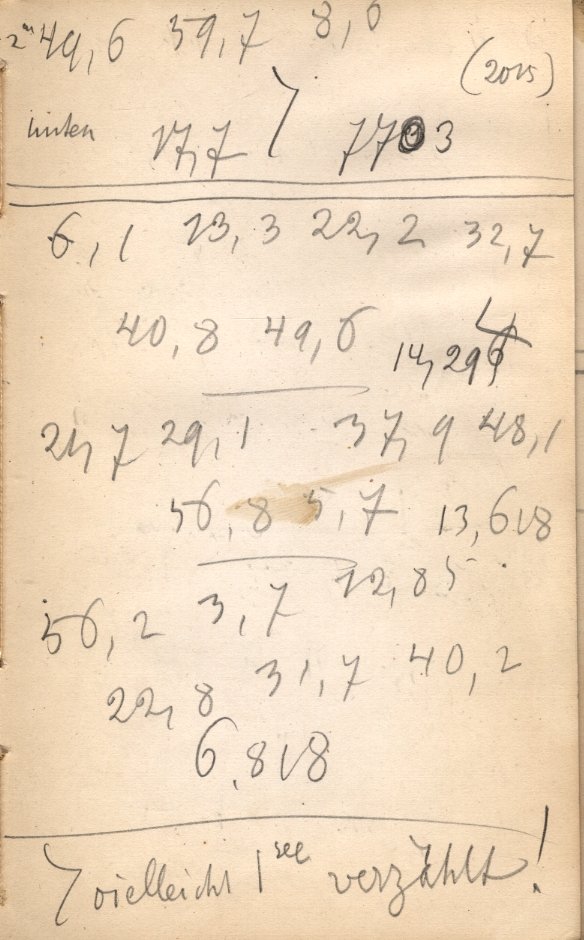 2ᵐ 49,6 59,7 8,0
(2015)
unten 17,7 } 7703
6,1 13,3 22,2 32,7
40,8 49,6 14,29
21,7 29,1 37,9 48,1
56,8 5,7 13,618
56,2 3,7 12,85
22,8 31,7 40,2
6.818
} vielleicht 1 sec verzählt!